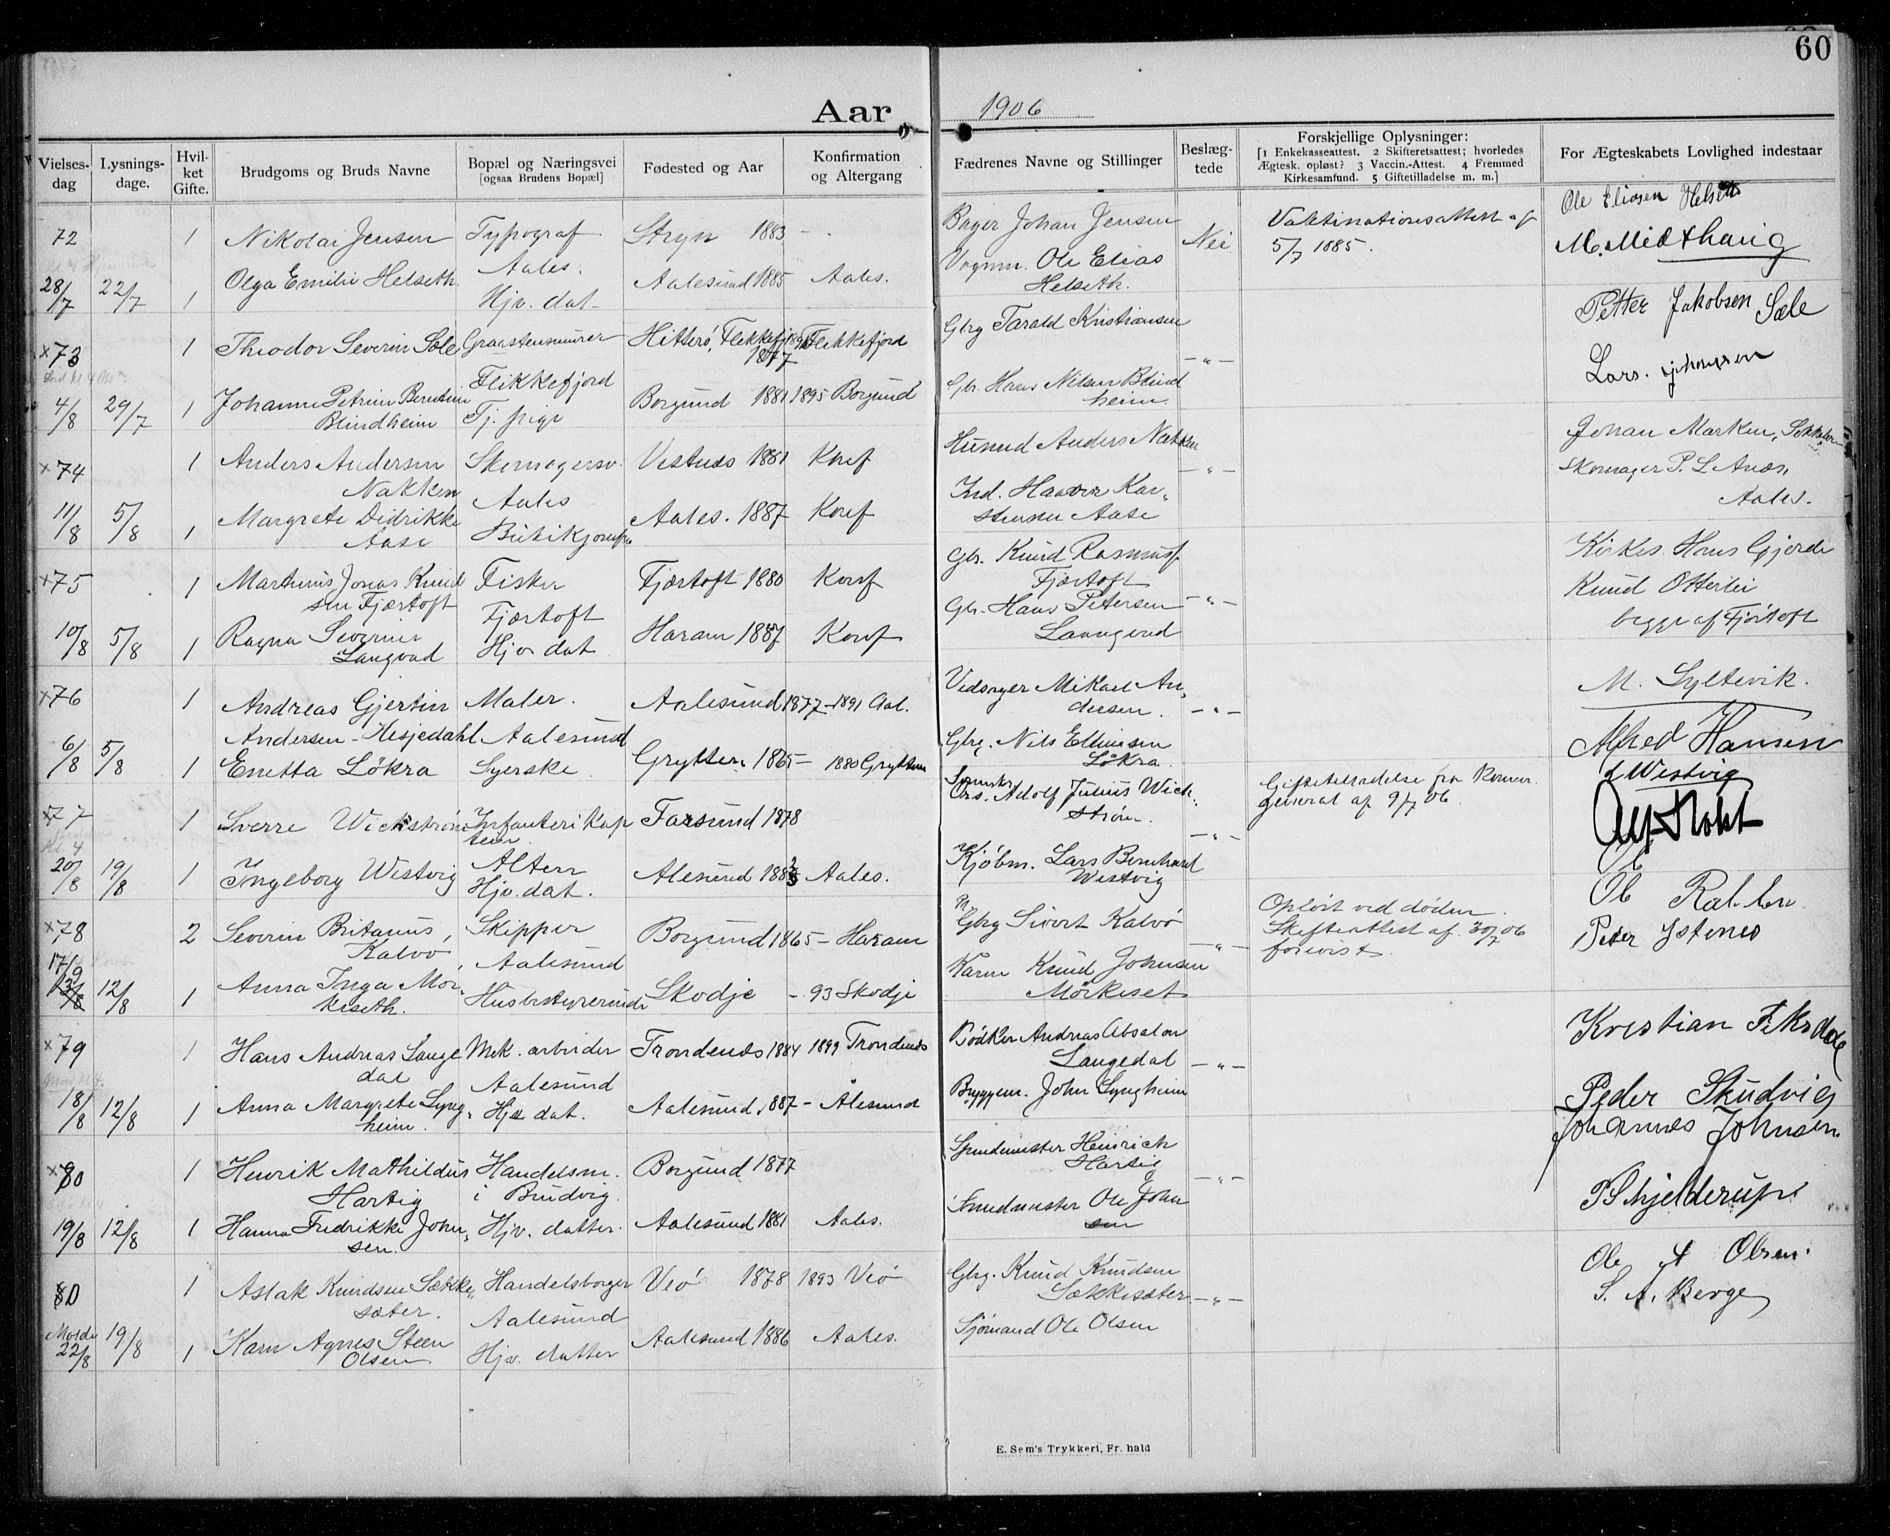 60
Aar 1906
Vielses-dag
Lysnings-dage.
Hvil-ket Gifte.
Brudgoms og Bruds Navne
Bopæl og Næringsvei [ogsaa Brudens Bopæl]
Fødested og Aar
Konfirmation og Altergang
Fædrenes Navne og Stillinger
Beslæg-tede
Forskjellige Oplysninger:
[1 Enkekasseattest. 2 Skifteretsattest; hvorledes
Ægtesk. opløst? 3 Vaccin.-Attest. 4 Fremmed
Kirkesamfund. 5 Giftetilladelse m. m.]
For Ægteskabets Lovlighed indestaar
72 1 Nikolai Jensen Typograf Stryn 1883 - Bager Johan Jensen Nei Vaktinationsattest af 5/7 1885. Ole Eliasen Helseth
Aales. M. Midthaug
28/7 22/7 1 Olga Emilie Helseth Hjv. dat. Aalesund 1885 Aales. Vognm. Ole Elias Helseth.
x73 1 Theodor Severin Sæle Graastensmurer Hitterø, Flekkefj. 1877 Flekkefjord Gbrg Tarald Kristiansen -"- Petter Jakobsen Sæle
Flekkefjord Lars Johansen
4/8 29/7 1 Johanne Petrine Berntine Blindheim Tj. pige Borgund 1881 1895 Borgund Gbr. Hans Nilsen Blindheim
x74 1 Anders Andersen Nakken Skomagersv. Vestnes 1881 Konf Husmd Anders Nakken -"- Johan Marken,
Aales Skomager P. L. Aales.
11/8 5/8 1 Margrete Didrikke Aase Butikjomfru Aales. 1887 Konf Ind. Haaver Karstensen Aase
x75 1 Martinus Jonas Knudsen Fjærtoft Fisker Fjærtoft 1880 Konf Gbr. Knud Rasmuss. Fjærtoft -"- Kirkes. Hans Gjerde
Fjærtoft Knud Otterlei
10/8 5/8 1 Ragna Severine Langvad Hjv dat Haram 1887 Konf Gbr. Hans Petersen Laangvad begge af Fjørtoft
x76 1 Andreas Gjertin Andersen-Hesjedahl Maler. Aalesund 1877 - 1891 Aal. Vedsager Mikael Andersen. -"- M. Syltevik.
Aalesund Alfred Hansen
6/8 5/8 1 Enetta Løkra Syerske Grytten 1865 - 1880 Grytten Gbrg. Nils Ellingsen Løkra.
77 1 Sverre Wickstrøm Infanterikaptein Farsund 1878 Adolf Julius Wickstrøm. -"- Giftetilladelse fra general af 9/7 06. L Westvig
Kl. 4 Alten
20/8 19/8 1 Ingeborg Westvig Hjv. dat. Alesund 1883 Aales. Kjøbm. Lars Bernhard Westvig
x78 2 Severin Britanus Kalvø Skipper Borgund 1865 - Haram Gbrg Sivert Kalvø -"- Opløst ved døden. Skifteattest af 30/7 06 forevist.
Aalesund Peter Ystenes
17/9 12/8 1 Anna Inga Morkeseth. Husbestyrerinde Skodje - 93 Skodje Knud Johnsen Mørkeset
x79 1 Hans Andreas Langedal Mek. arbeider Trondenes 1884 1899 Trondenes Bødker Andreas Absalon Langedal -"- Kristian Fiksdal
Aalesund Peder Skudvig
18/8 12/8 1 Anna Margrete Lyngheim. Hjv dat. Aalesund 1887 - Ålesund Bryggem. John Lyngheim
x80 1 Henrik Mathildus Hartig Handelsm. i Brudvig. Borgund 1877 Smedmester Heinrich Hartig -"- Johannes Johnsen
P Schjelderup.
19/8 12/8 1 Hanna Fredrikke Johnsen. Hjv. datter. Aalesund 1881 Aales. Smedmester Ole Johnsen
80 1 Aslak Knudsen Sækkesæter. Handelsborger Veø 1878 1893 Veø Gbrg. Knud Knudsen Sækkesæter -"- Ole A Olsen.
Aalesund S. A. Berge
Molde 22/8 19/8 1 Karn Agnes Steen Olsen. Hjv. datter Aalesund 1886 Aales. Sjømand Ole Olsen
E. Sem's Trykkeri, Fr.hald